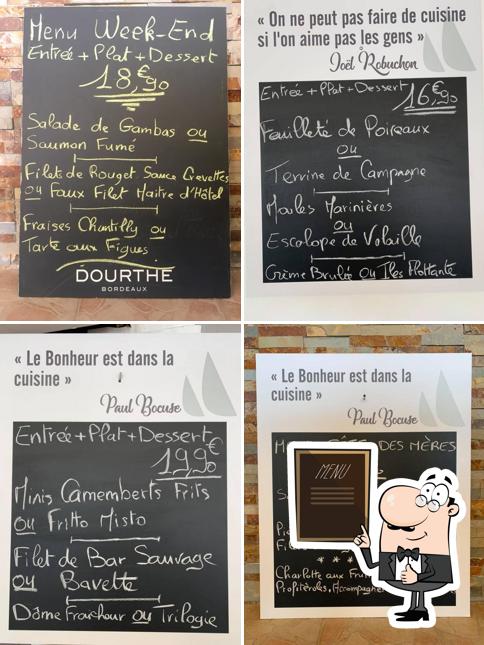 Menu Week-End
Entrée + Plat + Dessert
18,€90
Salade de Gambas ou
Saumon Fumé
Filets de Rouget Sauce Crevettes
ou Faux Filet Maitre d'Hôtel
Fraises Chantilly ou
Tarte aux Figues
DOURTHE
BORDEAUX
« On ne peut pas faire de cuisine
si l'on aime pas les gens »
Joël Robuchon
Entrée + Plat + Dessert
16,€90
Feuilleté de Poireaux
ou
Terrine de Campagne
Moules Marinières
ou
Escalope de Volaille
Crème Brulée ou Iles Flottante
« Le Bonheur est dans la
cuisine »
Paul Bocuse
Entrée + Plat + Dessert
19,90€
Minis Camemberts Frits
ou Fritto Misto
Filet de Bar Sauvage
ou Bavette
Dôme Fraicheur ou Trilogie
« Le Bonheur est dans la
cuisine »
Paul Bocuse
DES MÈRES
MENU
* * *
Charlotte aux
Profiteroles, Accompagne